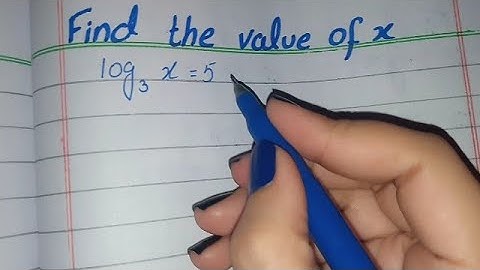 Find the value of x
log₃ x = 5